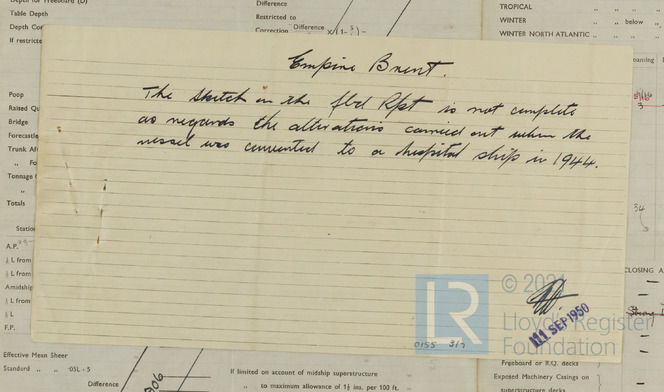 Depth for Freeboard (D)
Table Depth
Depth Cor
If restricte
Difference
Restricted to
Correction
Difference
TROPICAL
WINTER " " below "
WINTER NORTH ATLANTIC "
Empire Brent.
The sketch in the fbd Rpt is not complete
as regards the alterations carried out when the
vessel was converted to a hospital ship in 1944.
Poop
Raised Qu
Bridge
Forecastle
Trunk Aft
" Fo
Tonnage
"
Totals
Station
A.P.
¼ L from
¼ L from
Amidship
¼ L from
¼ L
F.P.
34
CLOSING A
Strong
LR
© 202
Lloyd's Register
Foundation
11 SEP 1950
0155 3/2
Effective Mean Sheer
Standard " " ·05L + 5
Difference
If limited on account of midship superstructure
" to maximum allowance of 1½ ins. per 100 ft.
Freeboard or R.Q. decks
Exposed Machinery Casings on
superstructure decks